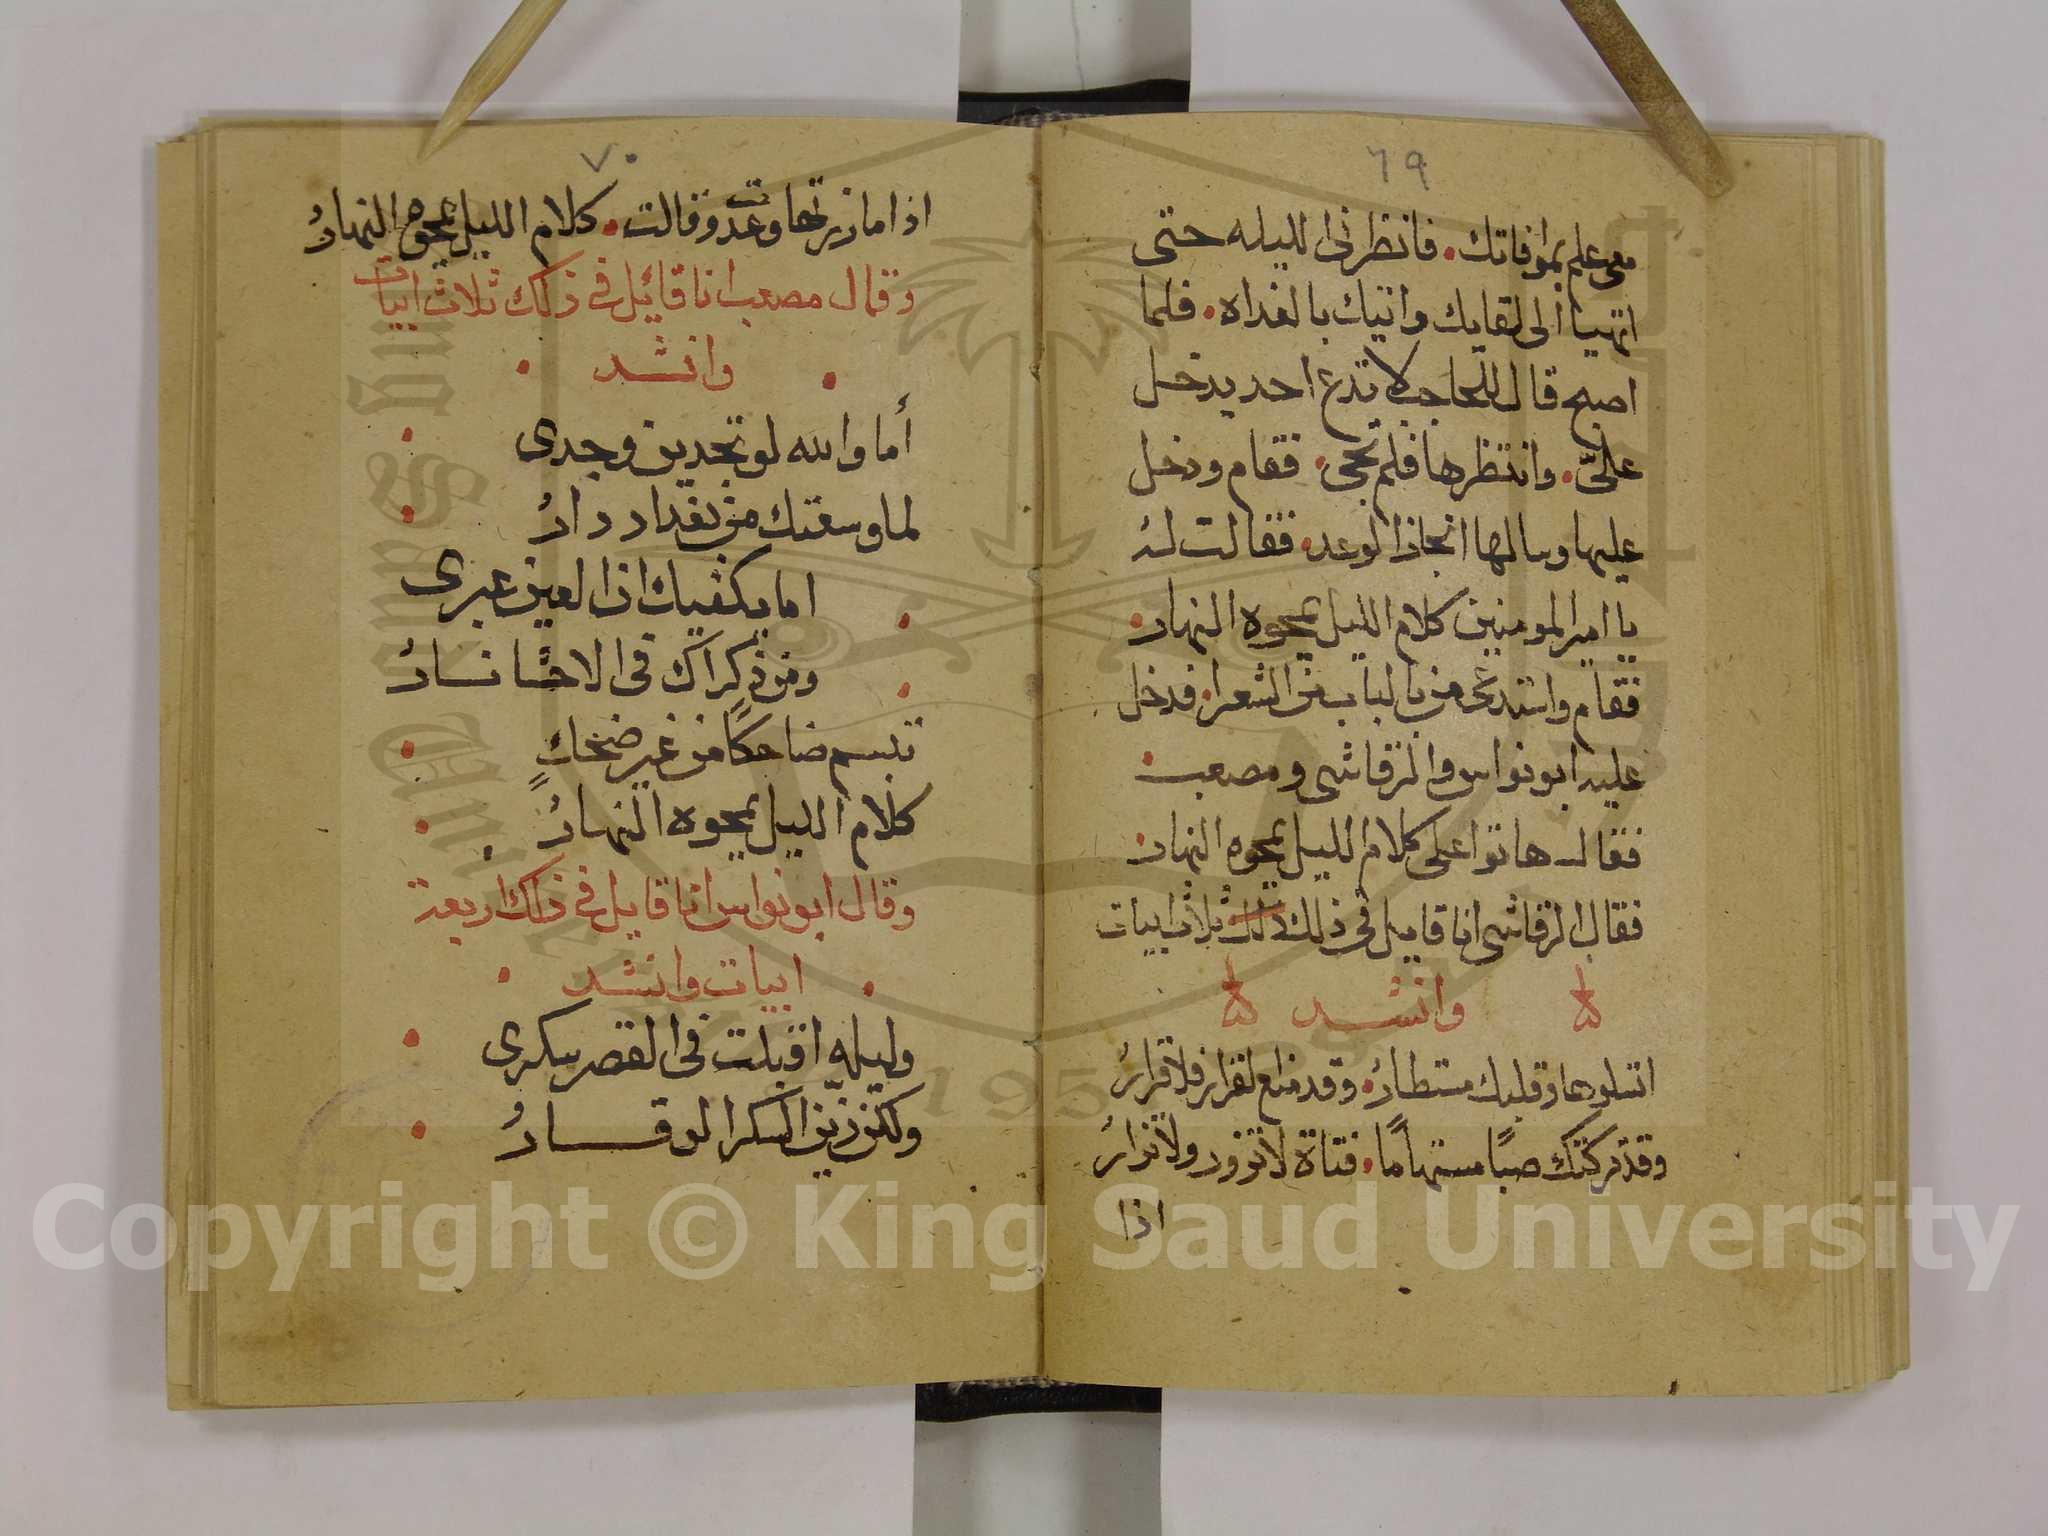 ٦٩
معى علم بموافاتك. فانظرنى الليله حتى
اتهيا الى لقايك واتيك بالغداه. فلما
اصبح قال للحاجب لا تدع احد يدخل
علىّ. وانتظرها فلم تجى. فقام ودخل
عليها وسالها انجاز الوعد. فقالت له
يا امير المومنين كلام الليل يمحوه النهار.
فقام واستدعى من بالباب من الشعرا. فدخل
عليه ابو نواس والرقاشى ومصعب.
فقال هاتوا على كلام الليل يمحوه النهار.
فقال الرقاشى انا قايل فى ذلك ذلك ثلاث ابيات
وانشد
اتسلوها وقلبك مستطارُ. وقد منع القرار فلا قرارُ
وقد تركتك صبًا مستهامًا. فتاة لا تزور ولا تزارُ
اذا
٧٠
اذا ما زرتها وعدت وقالت. كلام الليل يمحوه النهارُ
وقال مصعب انا قائيل فى ذلك ثلاث ابيات
. وانشد .
أما والله لو تجدين وجدى .
لما وسعتك من بغداد دارُ .
. اما يكفيك ان العين عبرى
. ومن ذكراك فى الاحشا نارُ
تبسم ضاحكًا من غير ضحكٍ .
كلام الليل يمحوه النهارُ .
وقال ابو نواس انا قايل فى ذلك اربعة
. ابيات وانشد .
وليله اقبلت فى القصر سكرى .
ولكن زين السكر الوقارُ .
1957
Copyright © King Saud University